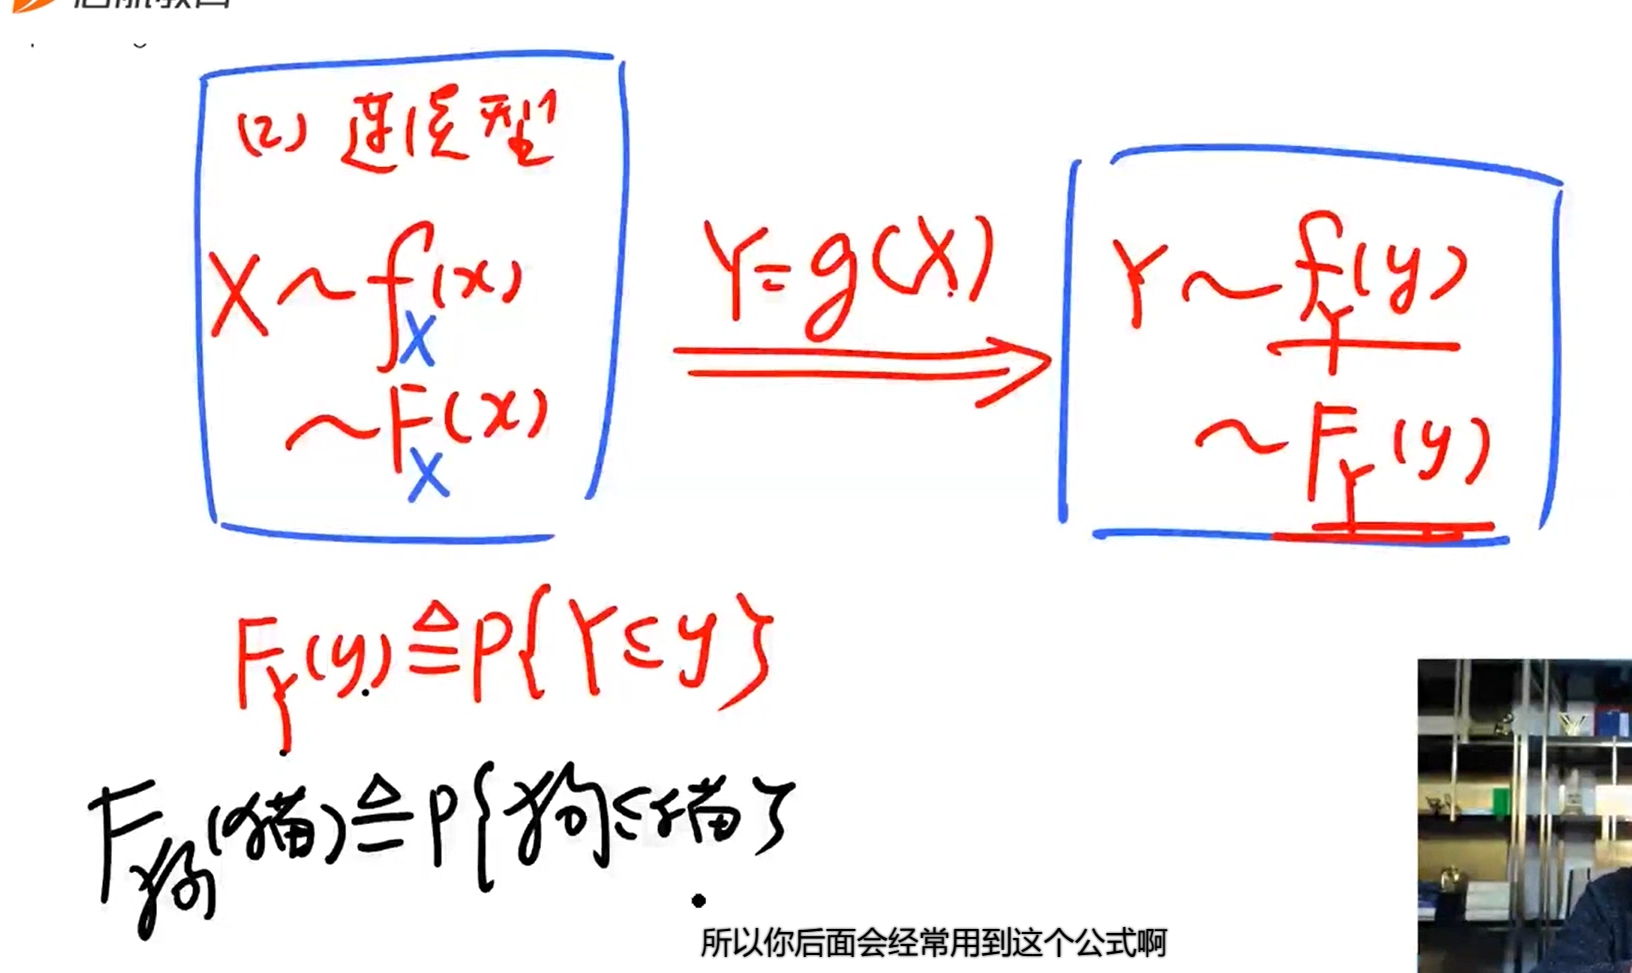 (2) 连续型
X ~ f_X(x)
~ F_X(x)
Y = g(X)
Y ~ f_Y(y)
~ F_Y(y)
F_Y(y) ≜ P{Y ≤ y}
F_狗(猫) ≜ P{狗 ≤ 猫}
所以你后面会经常用到这个公式啊